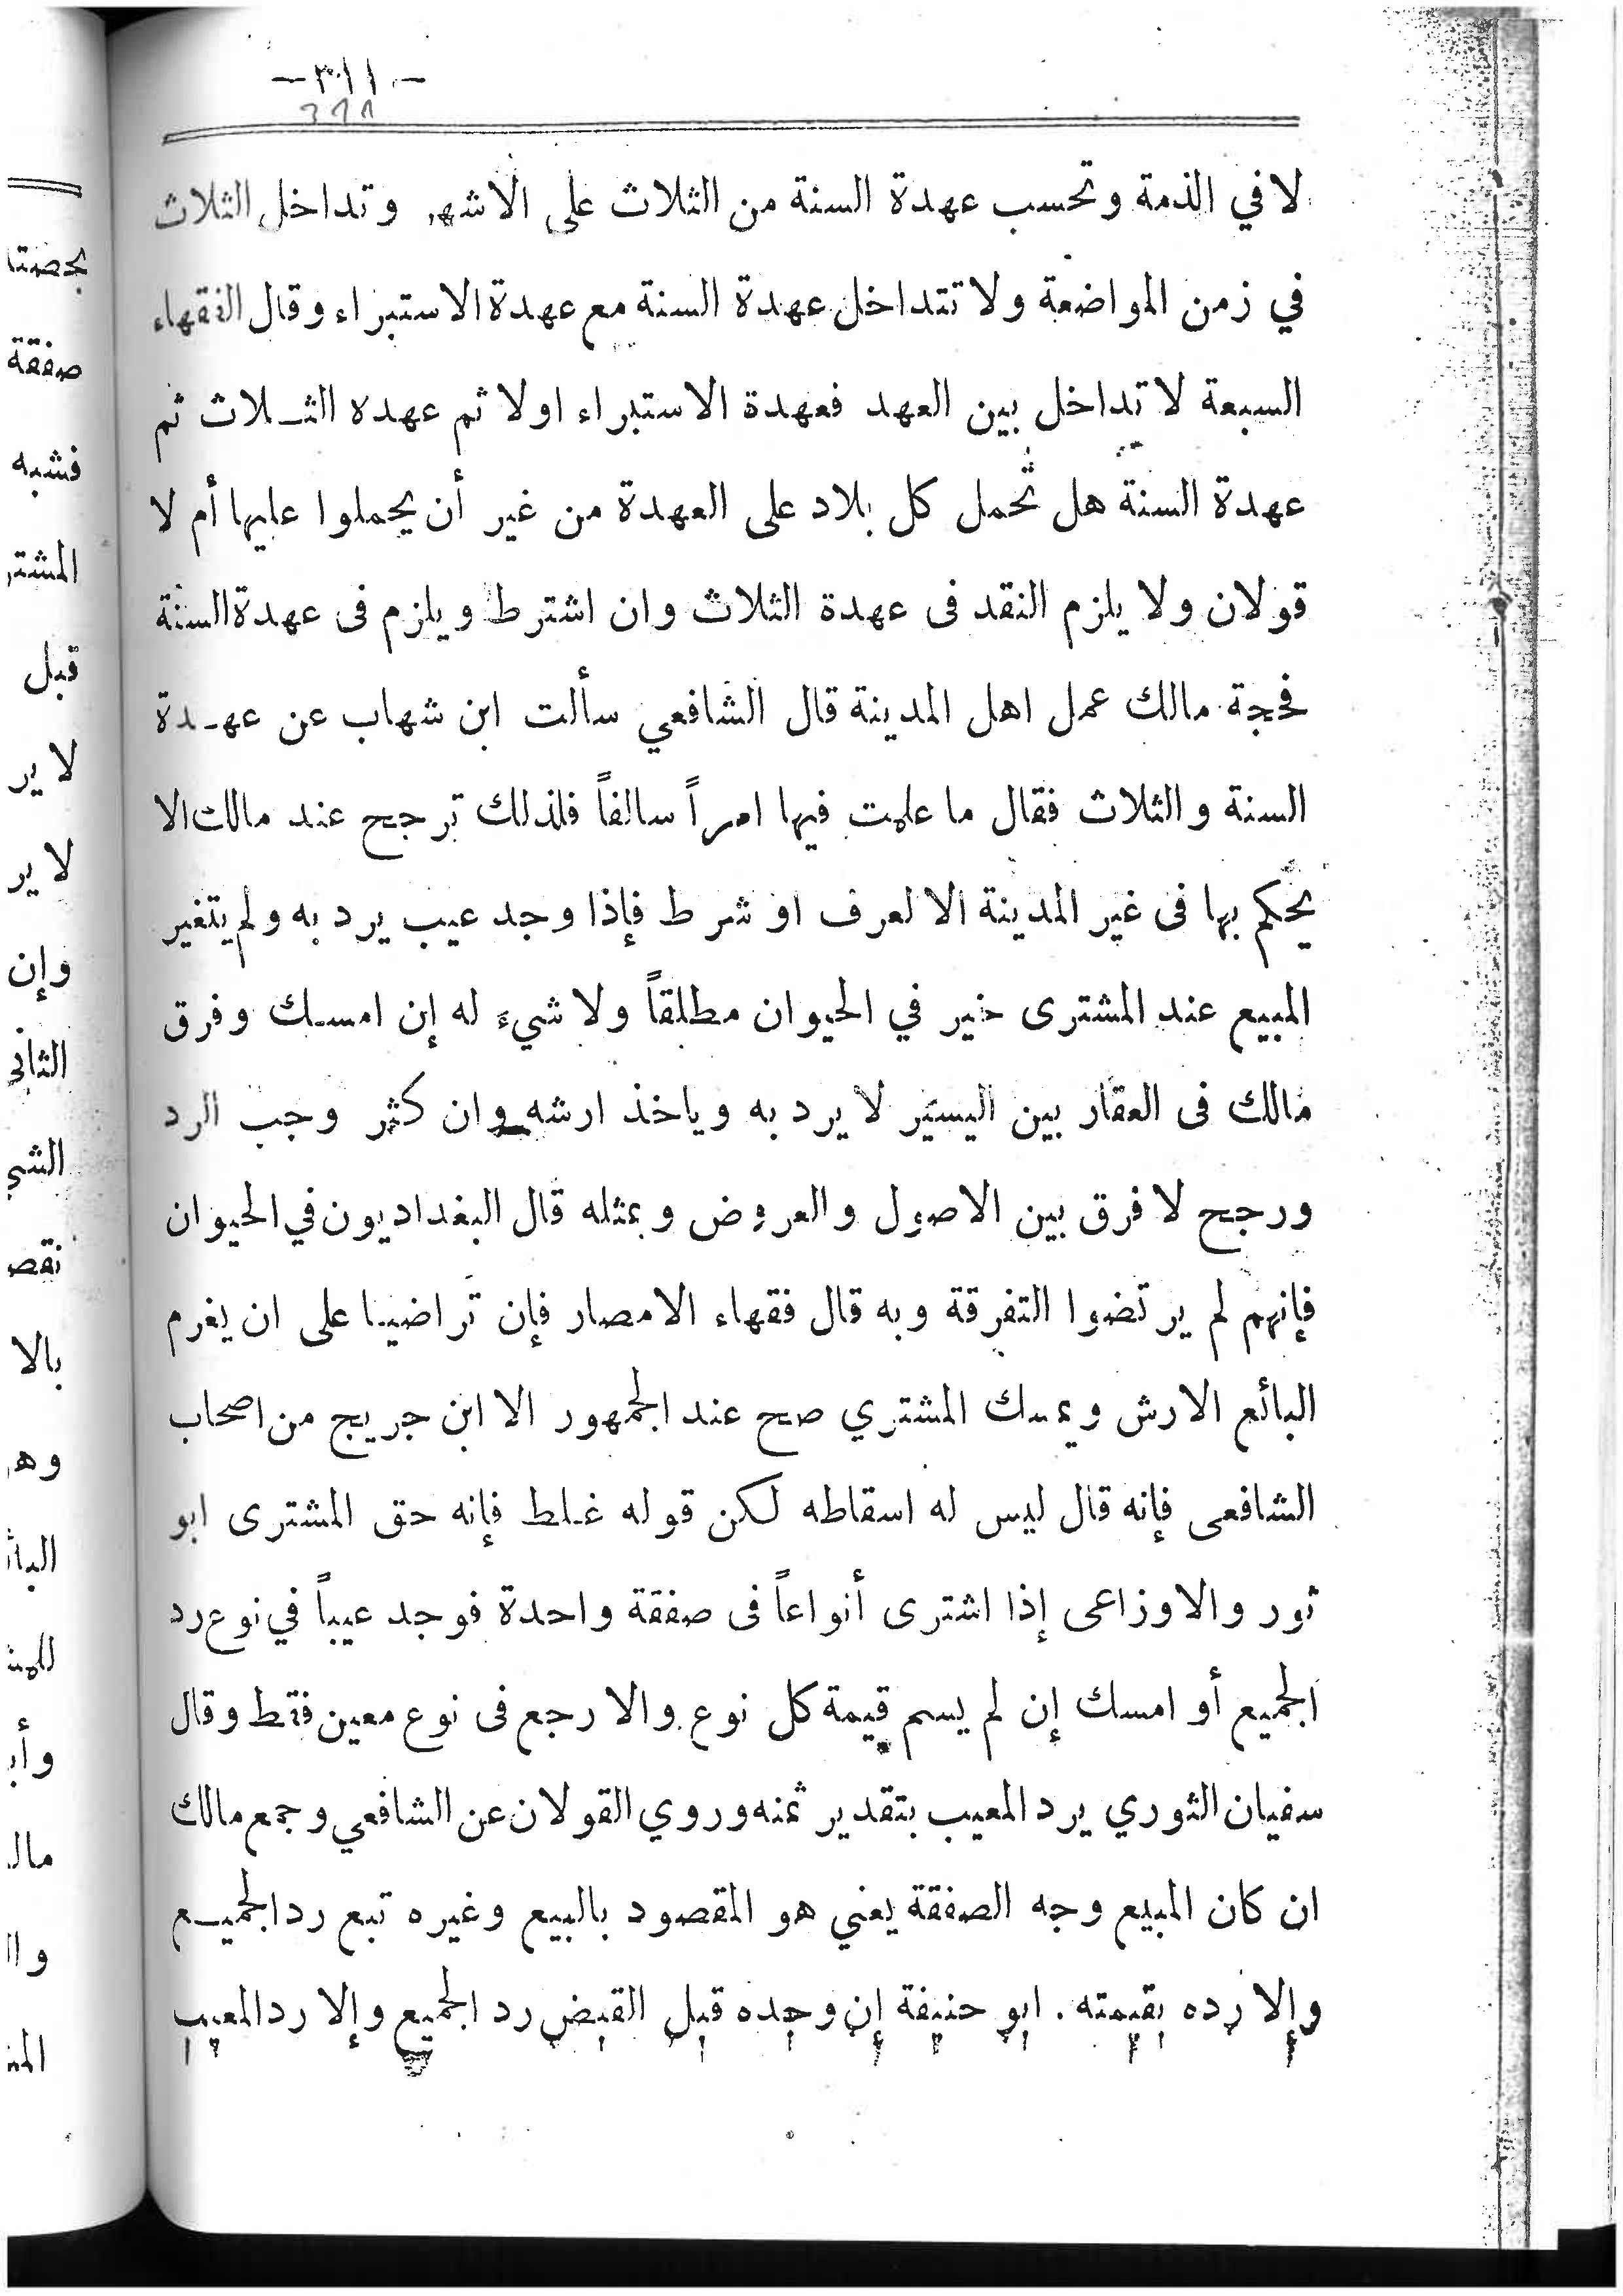 -٣١١-
311
لا في الذمة وتحسب عهدة السنة من الثلاث على الاشهر وتداخل الثلاث
في زمن المواضعة ولا تتداخل عهدة السنة مع عهدة الاستبراء وقال الفقهاء
السبعة لا تداخل بين العهد فعهدة الاستبراء اولا ثم عهده الثــلاث ثم
عهدة السنة هل تُحمل كل بلاد على العهدة من غير أن يحملوا عليها أم لا
قولان ولا يلزم النقد فى عهدة الثلاث وان اشترط ويلزم فى عهدة السنة
فحجة مالك عمل اهل المدينة قال الشافعي سألت ابن شهاب عن عهـدة
السنة والثلاث فقال ما علمت فيها امراً سالفاً فلذلك ترجح عند مالك الا
يحكم بها فى غير المدينة الا لعرف او شرط فإذا وجد عيب يرد به ولم يتغير
المبيع عند المشترى خير في الحيوان مطلقاً ولا شيء له إن امسك وفرق
مالك فى العقار بين اليسير لا يرد به وياخذ ارشه وان كثر وجب الرد
ورجح لا فرق بين الاصول والعروض وبمثله قال البغداديون في الحيوان
فإنهم لم يرتضوا التفرقة وبه قال فقهاء الامصار فإن تراضيا على ان يغرم
البائع الارش ويمسك المشتري صح عند الجمهور الا ابن جريج من اصحاب
الشافعى فإنه قال ليس له اسقاطه لكن قوله غلط فإنه حق المشترى ابو
ثور والاوزاعى إذا اشترى أنواعاً فى صفقة واحدة فوجد عيباً في نوع رد
الجميع أو امسك إن لم يسم قيمة كل نوع والا رجع فى نوع معين فقط وقال
سفيان الثوري يرد المعيب بتقدير ثمنه وروي القولان عن الشافعي وجمع مالك
ان كان المبيع وجه الصفقة يعني هو المقصود بالبيع وغيره تبع رد الجميــع
وإلا رده بقيمته . ابو حنيفة إن وجده قبل القبض رد الجميع وإلا رد المعيب
صفقة
فشبه
قبل
لا ير
لا ير
وإن